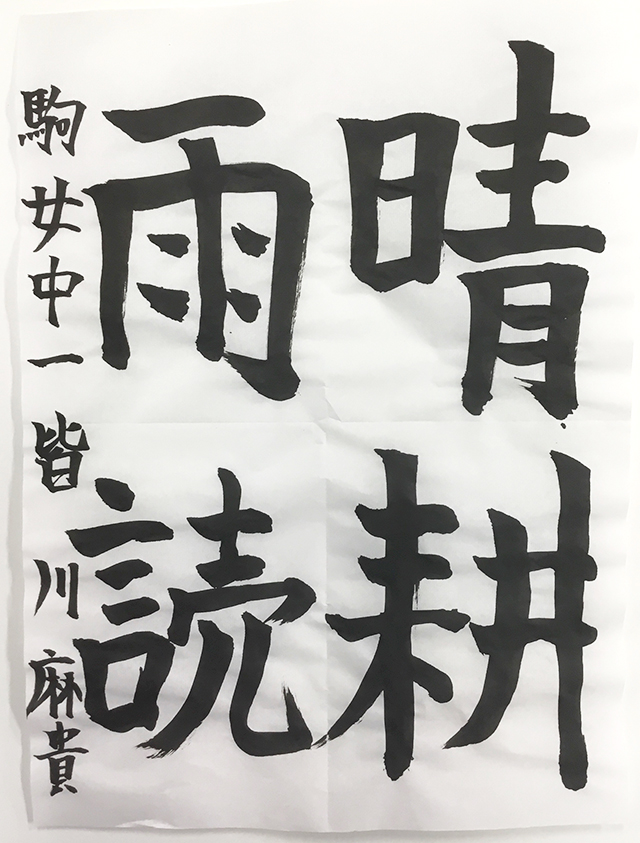 晴耕
雨読
駒女中一 皆川麻貴